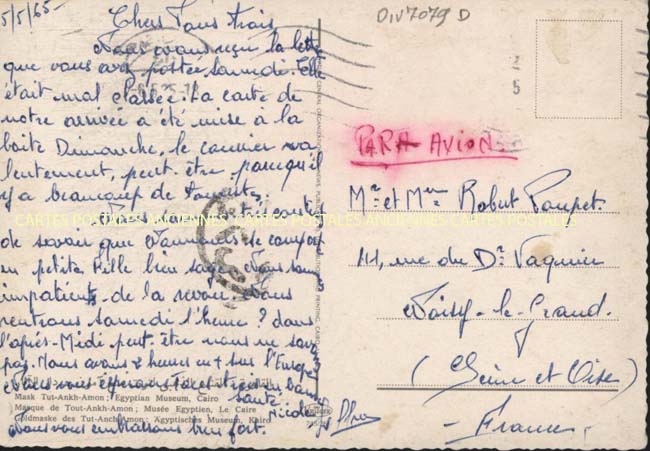 5/5/65
Chers Tous trois
Nous avons reçu la lettre
que vous avez postée samedi. Elle
était mal classée. La carte de
notre arrivée a été mise à la
boite Dimanche, le courrier va
lentement, peut être parce qu'il
y a beaucoup de touristes.
de savoir que se comporte
en petite fille bien sage. Nous sommes
impatients de la revoir. Nous
rentrons samedi l'heure ? dans
l'après-Midi peut-être nous ne savons
pas. Nous avons 2 heures en + sur l'Europe
bonne
santé.
Nicole
Nous vous embrassons bien fort.
Mask Tut-Ankh-Amon; Egyptian Museum, Cairo
Masque de Tout-Ankh-Amon; Musée Egyptien, Le Caire
Goldmaske des Tut-Anchamon; Ägyptisches Museum, Kairo
DIV7079 D
PAR AVION
Mr et Mme Robert Poupet
rue du Dr Vaquier
Noisy-le-Grand.
(Seine et Oise)
-France-
CARTES POSTALES ANCIENNES CARTES POSTALES ANCIENNES CARTES POSTALES